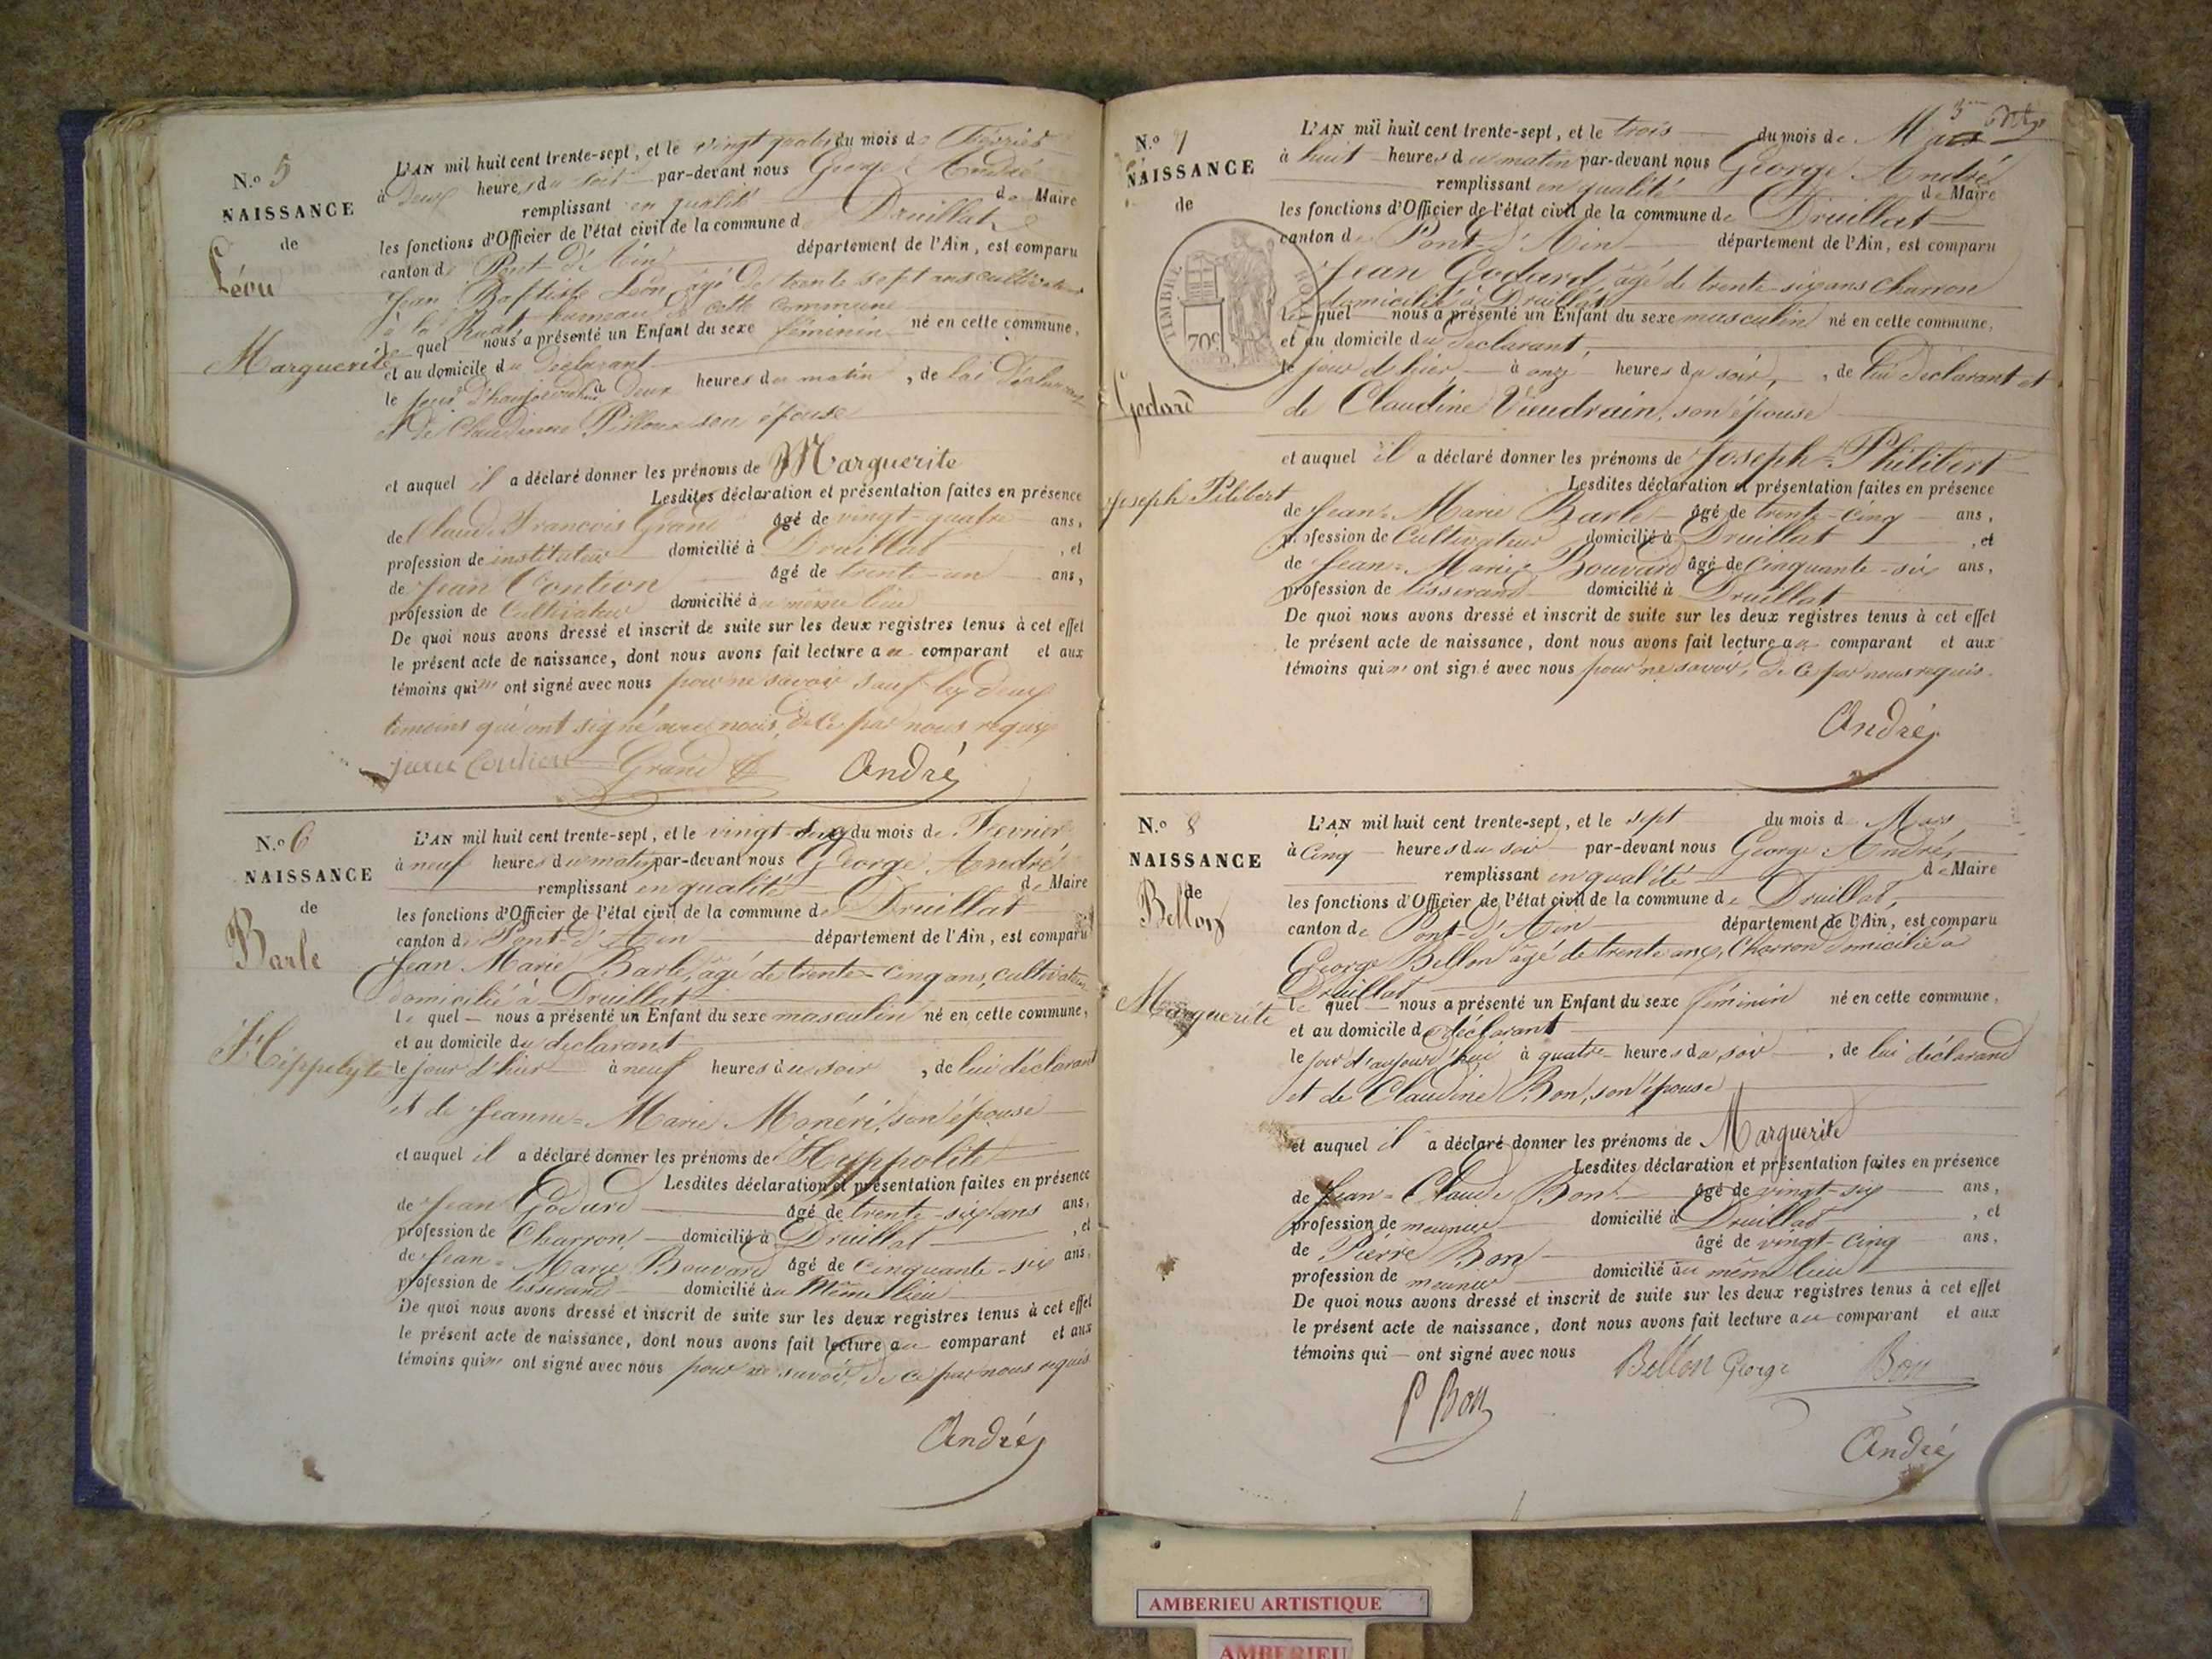 N.o 5
NAISSANCE
de
Léon
Marguerite
L'AN mil huit cent trente-sept, et le vingt quatre du mois de Février
à Deux heures du soir par-devant nous George André
remplissant en qualité de Maire
les fonctions d'Officier de l'état civil de la commune d Druillat
canton de Pont-d'Ain département de l'Ain, est comparu
Jean Baptiste Léon âgé de trente sept ans cultivateur
à la Ruat hameau de cette commune
le quel nous a présenté un Enfant du sexe féminin né en cette commune,
et au domicile du Déclarant
le jour d'haujourdhui à Deux heures du matin, de lui Déclarant
et de Claudinne son épouse
et auquel il a déclaré donner les prénoms de Marguerite
Lesdites déclaration et présentation faites en présence
de Claude François Grand âgé de vingt-quatre ans,
profession de instituteur domicilié à Druillat, et
de Jean Coution âgé de trente-un ans,
profession de Cultivateur domicilié au même lieu
De quoi nous avons dressé et inscrit de suite sur les deux registres tenus à cet effet
le présent acte de naissance, dont nous avons fait lecture au comparant et aux
témoins qui n' ont signé avec nous pour ne savoir sauf les deux
témoins qui ont signé avec nous, de ce par nous requis
Grand André
N.o 6
NAISSANCE
de
Barle
Hippolyte
L'AN mil huit cent trente-sept, et le vingt-six du mois de Fevrier
à neuf heures du matin par-devant nous George André
remplissant en qualité de Maire
les fonctions d'Officier de l'état civil de la commune de Druillat
canton de Pont-d'Ain département de l'Ain, est comparu
Jean Marie Barle, âgé de trente-cinq ans, cultivateur
domicilié à Druillat
le quel nous a présenté un Enfant du sexe masculin né en cette commune,
et au domicile du déclarant
le jour d'hier à neuf heures du soir, de lui déclarant
et de Jeanne-Marie Monéri, son épouse
et auquel il a déclaré donner les prénoms de Hyppolite
Lesdites déclaration et présentation faites en présence
de Jean Godard âgé de trente-six ans ans,
profession de Charron domicilié à Druillat, et
de Jean-Marie Bouvard âgé de cinquante-six ans,
profession de tisserand domicilié au même lieu
De quoi nous avons dressé et inscrit de suite sur les deux registres tenus à cet effet
le présent acte de naissance, dont nous avons fait lecture au comparant et aux
témoins qui n' ont signé avec nous pour ne savoir, de ce par nous requis
André
N.o 7
NAISSANCE
de
Godard
Joseph Pilibert
TIMBRE ROYAL
70c
L'AN mil huit cent trente-sept, et le trois du mois de Mars
à huit heures du matin par-devant nous George André
remplissant en qualité de Maire
les fonctions d'Officier de l'état civil de la commune de Druillat
canton de Pont-d'Ain département de l'Ain, est comparu
Jean Godard, âgé de trente-six ans charron
domicilié à Druillat
le quel nous a présenté un Enfant du sexe masculin né en cette commune,
et au domicile du déclarant,
le jour d'hier à onze heures du soir, de lui déclarant et
de Claudine Vieudrain, son épouse
et auquel il a déclaré donner les prénoms de Joseph-Philibert
Lesdites déclaration et présentation faites en présence
de Jean-Marie Barle âgé de trente-cinq ans,
profession de Cultivateur domicilié à Druillat, et
de Jean-Marie Bouvard âgé de cinquante-six ans,
profession de tisserand domicilié à Druillat
De quoi nous avons dressé et inscrit de suite sur les deux registres tenus à cet effet
le présent acte de naissance, dont nous avons fait lecture au comparant et aux
témoins qui n' ont signé avec nous pour ne savoir, de ce par nous requis.
André
N.o 8
NAISSANCE
de
Bellon
Marguerite
L'AN mil huit cent trente-sept, et le sept du mois d Mars
à cinq heures du soir par-devant nous George André,
remplissant en qualité de Maire
les fonctions d'Officier de l'état civil de la commune de Druillat,
canton de Pont-d'Ain département de l'Ain, est comparu
George Bellon âgé de trente ans, Charron domicilié à
Druillat
le quel nous a présenté un Enfant du sexe féminin né en cette commune,
et au domicile du déclarant
le jour d'aujourd'hui à quatre heures du soir, de lui déclarant
et de Claudine Bon, son épouse
et auquel il a déclaré donner les prénoms de Marguerite
Lesdites déclaration et présentation faites en présence
de Jean-Claude Bon âgé de vingt-six ans,
profession de meunier domicilié à Druillat, et
de Pierre Bon âgé de vingt-cinq ans,
profession de meunier domicilié au même lieu
De quoi nous avons dressé et inscrit de suite sur les deux registres tenus à cet effet
le présent acte de naissance, dont nous avons fait lecture au comparant et aux
témoins qui ont signé avec nous Bellon George Bon
P Bon
André
AMBERIEU ARTISTIQUE
AMBERIEU